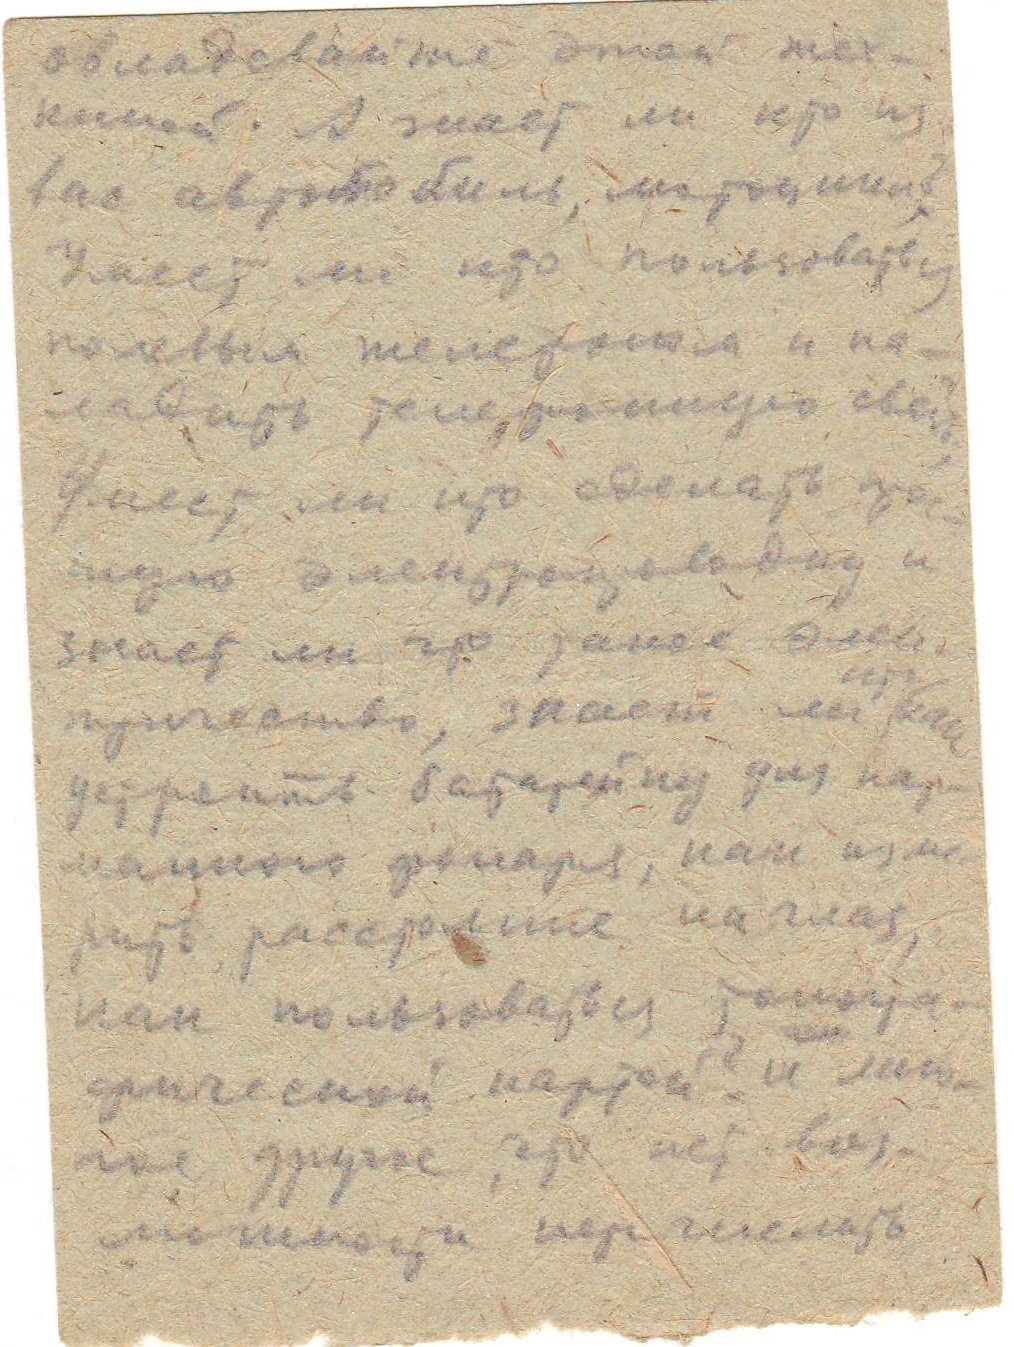 обладевайте этой тех-
никой. А знает ли кто из
вас автомобиль, мотоцикл?
Умеет ли кто пользоваться
полевым телефоном и на-
ладить телефонную связь?
Умеет ли кто сделать
электропроводку и
знает ли что такое элек-
тричество, знает ли кто как
устроить батарейку для кар-
манного фонаря, как изме-
рить расстояние на глаз,
как пользоваться топогра-
фической картой? и мно-
гое другое, что нет воз-
можности перечислять